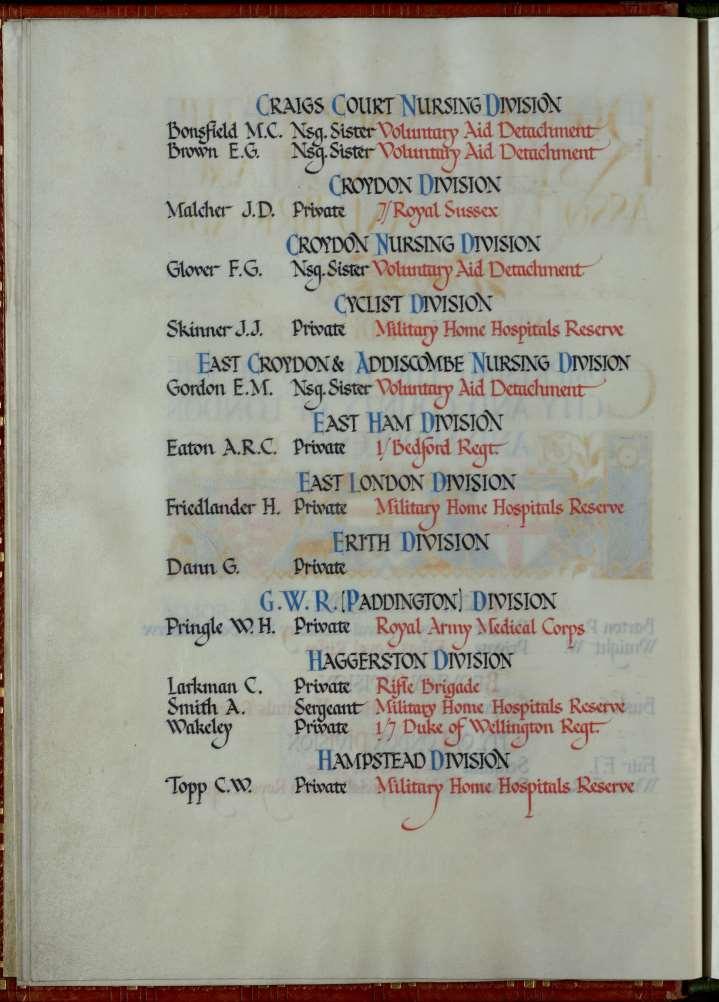 CRAIGS COURT NURSING DIVISION
Bonsfield M.C. Nsg. Sister Voluntary Aid Detachment
Brown E.G. Nsg. Sister Voluntary Aid Detachment
CROYDON DIVISION
Malcher J.D. Private 7/Royal Sussex
CROYDON NURSING DIVISION
Glover F.G. Nsg. Sister Voluntary Aid Detachment
CYCLIST DIVISION
Skinner J.J. Private Military Home Hospitals Reserve
EAST CROYDON & ADDISCOMBE NURSING DIVISION
Gordon E.M. Nsg. Sister Voluntary Aid Detachment
EAST HAM DIVISION
Eaton A.R.C. Private 1/Bedford Regt.
EAST LONDON DIVISION
Friedlander H. Private Military Home Hospitals Reserve
ERITH DIVISION
Dann G. Private
G.W.R. (PADDINGTON) DIVISION
Pringle W.H. Private Royal Army Medical Corps
HAGGERSTON DIVISION
Larkman C. Private Rifle Brigade
Smith A. Sergeant Military Home Hospitals Reserve
Wakeley Private 1/7 Duke of Wellington Regt.
HAMPSTEAD DIVISION
Topp C.W. Private Military Home Hospitals Reserve